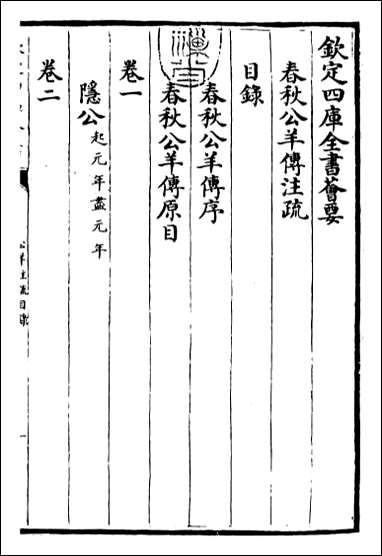 欽定四庫全書薈要
春秋公羊傳注疏
目錄
春秋公羊傳序
春秋公羊傳原目
卷一
隱公起元年盡元年
卷二
公羊注疏目錄